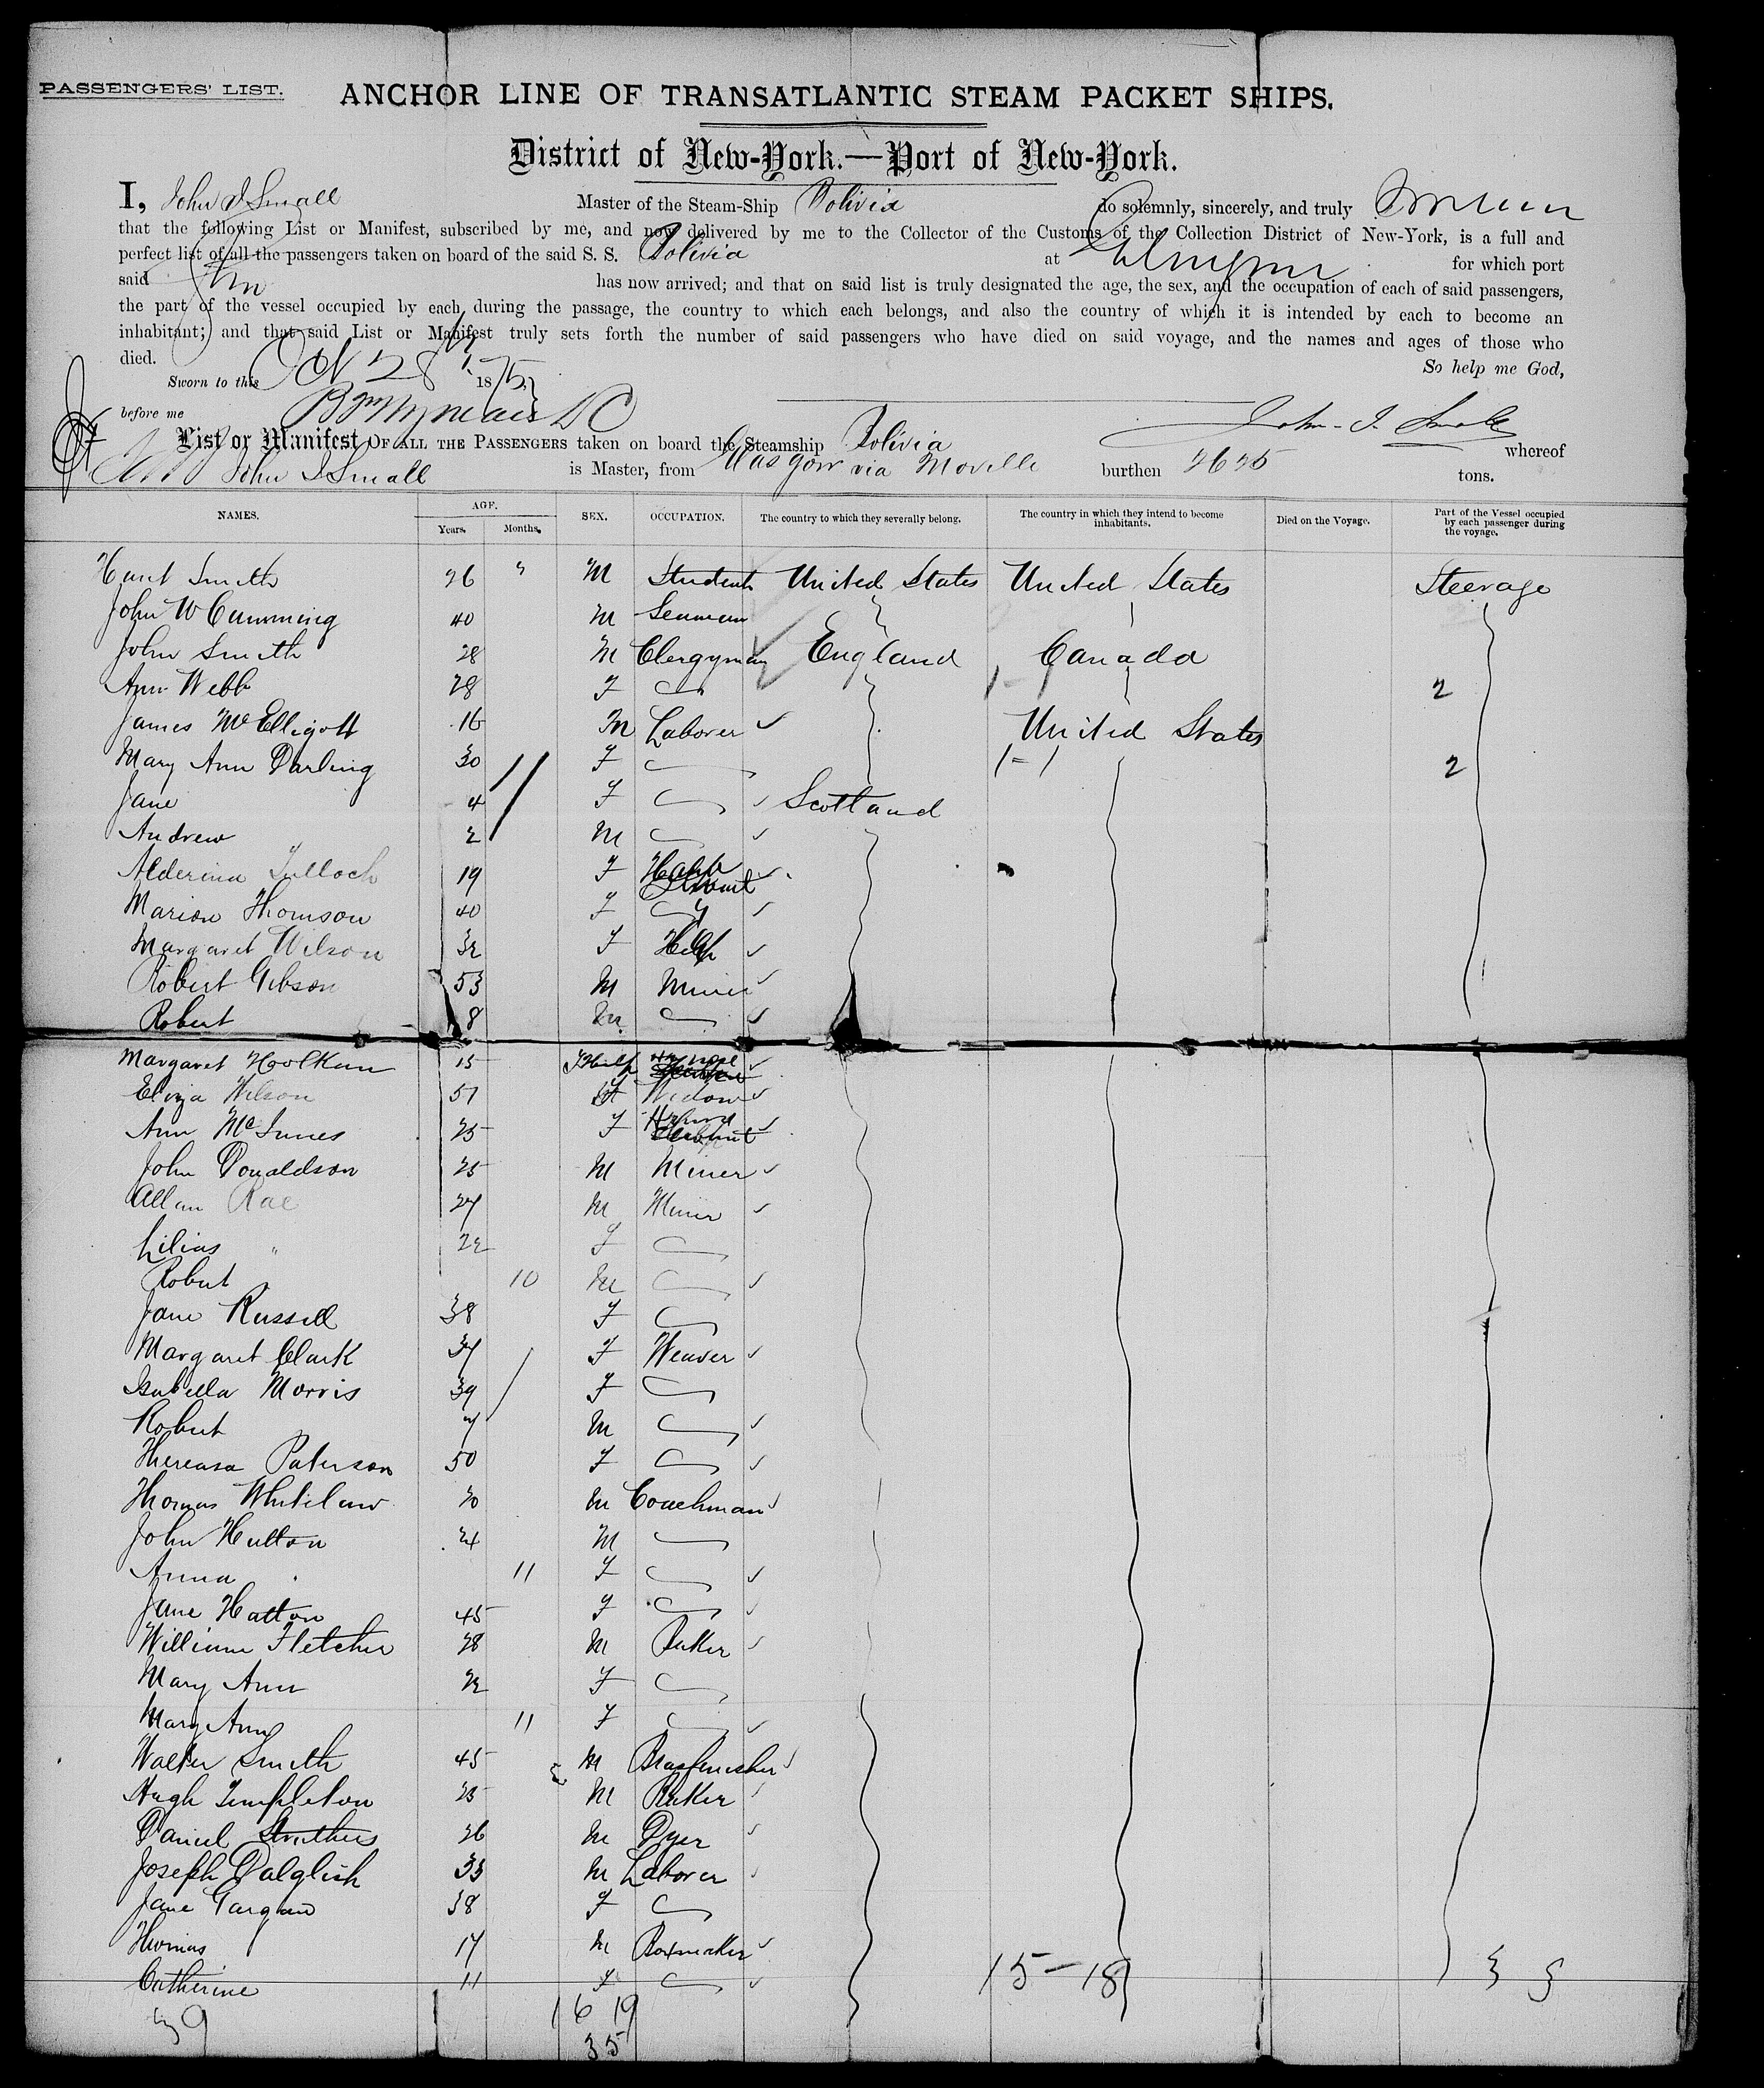 PASSENGERS' LIST.
ANCHOR LINE OF TRANSATLANTIC STEAM PACKET SHIPS.
District of New-York.—Port of New-York.
I, John I Small Master of the Steam-Ship Bolivia do solemnly, sincerely, and truly
that the following List or Manifest, subscribed by me, and now delivered by me to the Collector of the Customs of the Collection District of New-York, is a full and
perfect list of all the passengers taken on board of the said S. S. Bolivia at for which port
said has now arrived; and that on said list is truly designated the age, the sex, and the occupation of each of said passengers,
the part of the vessel occupied by each during the passage, the country to which each belongs, and also the country of which it is intended by each to become an
inhabitant; and that said List or Manifest truly sets forth the number of said passengers who have died on said voyage, and the names and ages of those who
died. So help me God,
Sworn to this Oct 28 1875
before me John I. Small
List or Manifest OF ALL THE PASSENGERS taken on board the Steamship Bolivia whereof
John I Small is Master, from Glasgow via Moville burthen 2625 tons.
NAMES. AGE. Years. Months. SEX. OCCUPATION. The country to which they severally belong. The country in which they intend to become inhabitants. Died on the Voyage. Part of the Vessel occupied by each passenger during the voyage.
Smith 26 " M Student United States United States Steerage
John W Cumming 40 M Seaman
John Smith 28 M Clergyman England Canada
Ann Webb 28 F 1-1 2
James McElligott 16 M Laborer United States
Mary Ann Darling 30 F 1-1 2
Jane 4 F Scotland
Andrew 2 M
Alderina Tulloch 19 F Servant
Marion Thomson 40 F
Margaret Wilson 32 F Help
Robert Gibson 53 M Miner
Robert 8 M
Margaret 15 F
Eliza Wilson 57 F Widow
Ann McInnes 25 F Servant
John Donaldson 25 M Miner
Allan Rae 27 M Miner
Lilias " 22 F
Robert 10 M
Jane Russell 38 F
Margaret Clark 37 F Weaver
Isabella Morris 39 F
Robert 7 M
Thereasa Paterson 50 F
Thomas Whitelaw 20 M Coachman
John Hutton 24 M
Anna 11 F
Jane Hatton 45 F
William Fletcher 28 M Baker
Mary Ann 22 F
Mary Ann 11 F
Walter Smith 45 M Brassfinisher
Hugh Templeton 25 M Baker
Daniel Struthers 26 M Dyer
Joseph Dalglish 33 M Laborer
Jane 38 F
Thomas 17 M Boxmaker
Catherine 11 F 15-18
39 16 19
35